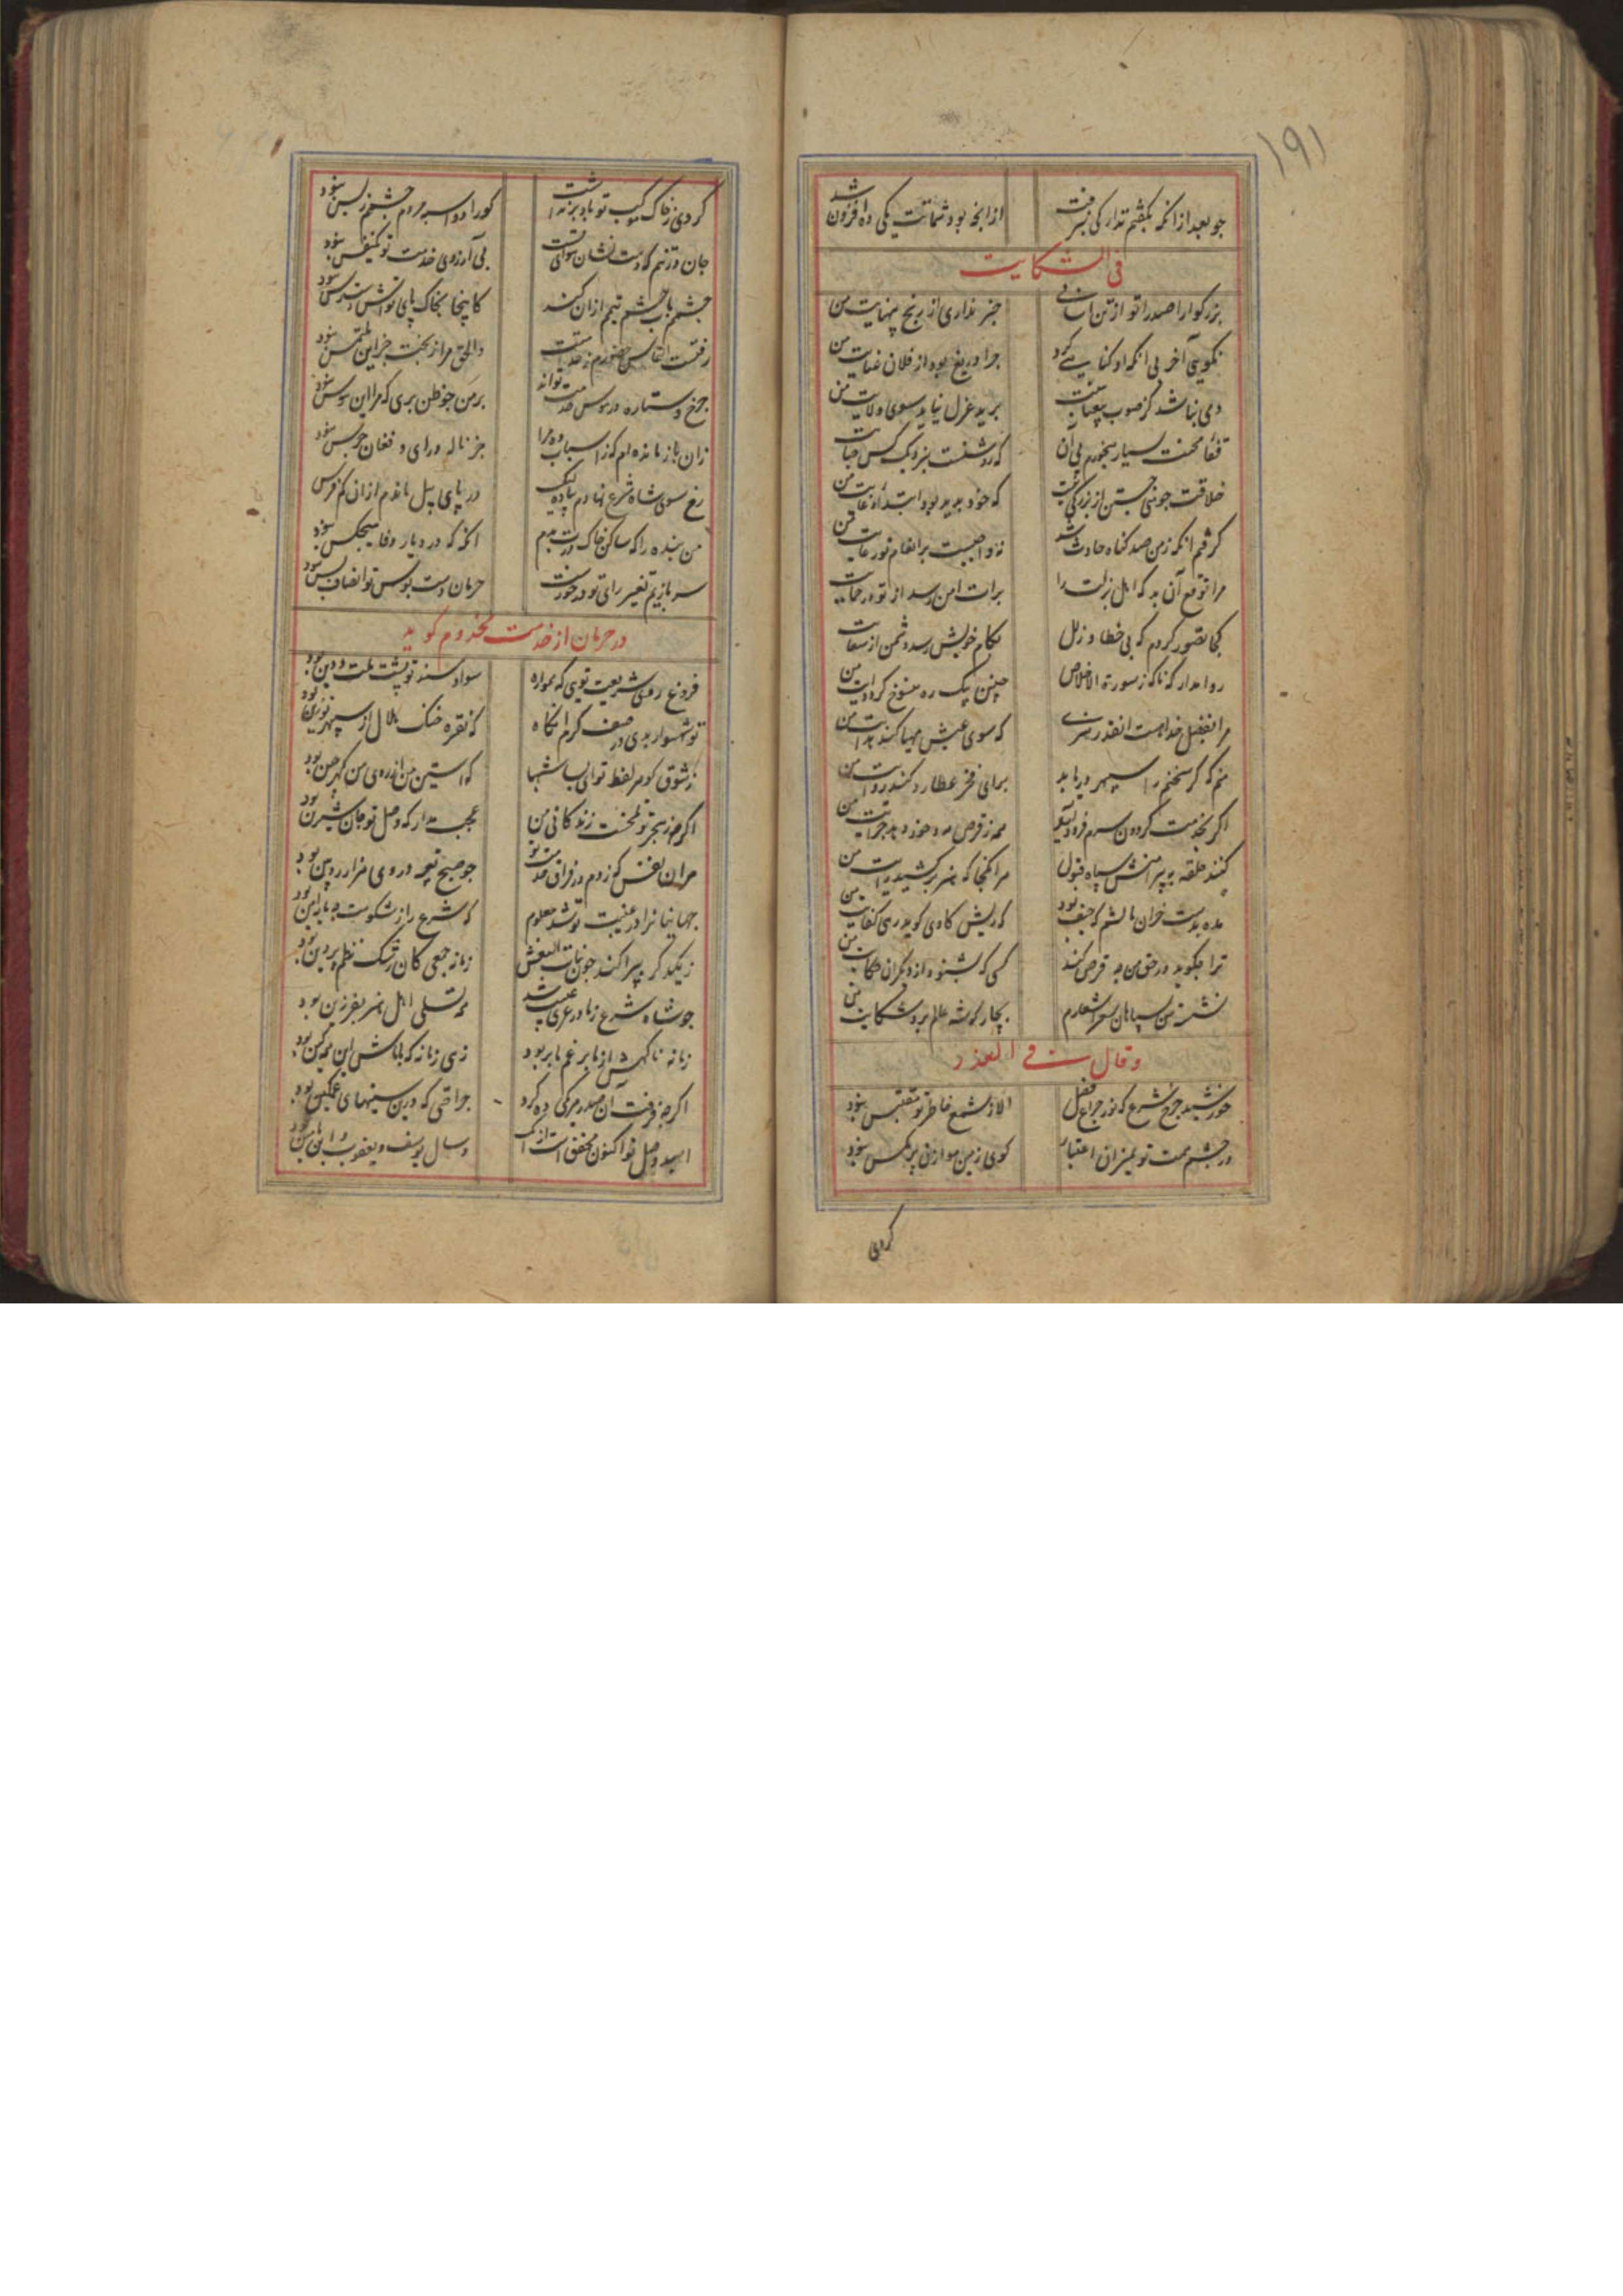 ۱۹۱
جو بعد از انکه بکشتم تدارکی بنرفت
از انچه بود شماتت یکی ده افزون شد
فی الشکایت
بزرکوارا صدرا تو از تن آسانی
خبر نداری از رنج بی نهایت من
نکویی آخر بی انکه او کنایی کرد
جرا دریغ بود از فلان عنایت من
دمی نباشد کز صوب
برید عزل نیاید سوی ولایت من
قفا محنت بسیار میخورم بی آن
که رد شفت بنزدیک کس جنایت من
خلاقت جونی جستن از بزرکی تست
که خود بدید بود ابتدا و غایت من
کرفتم انکه ز من صد کناه حادث شد
نه واجبست بر انعام تو رعایت من
مرا توقع آن بد که اهل زلت را
برات امن رسد از تو در حمایت من
کجا تصور کردم که بی خطا و زلل
بکام خویش رسد دشمن از سعایت من
روا مدار که ناکه ز سورة الاخلاص
چنین بیک ره منسوخ کردد آیت من
مرا بفضل خدا هست انقدر هنری
که سوی عیش مهیا کند هدایت من
منم که کر سخنم را سپهر دریابد
برای فخر عطارد کند روایت من
اکر بخدمت کردون سرم فرود آید
مه ز قرص خود دهد جرایت من
کنند حلقه به پیرامنش سپاه قبول
هر انکجا که هنر برکشید رایت من
مده بدست خران مالشم که حیف بود
که ریش کاوی کوید بدی کفایت من
ترا جکوید در حق من جه فرض کند
کسی که بشنود از دیکران حکایت من
نشسته من بسپاهان و شعر اشعارم
بچار کوشه عالم برد شکایت من
وقال فی العذر
خورشید جرخ شرع که نور جراغ فضل
الا ز شمع خاطر تو مقتبس نبود
در جشم همت تو بمیزان اعتبار
کوی زمین موازن پر مکس نبود
کردی
کردی ز خاک
کورا دو اسبه مردم جشمم ز پس نبود
جان در تنم که دست نشان هوای تست
بی آرزوی خدمت تو یکنفس نبود
جشمم بآب جشم تیمم ازان کند
کاینجا بخاک پای تواش دسترس نبود
رفتست التماس حضورم بخدمتت
والحق مرا ز بخت جز این ملتمس نبود
جرخ و ستاره در هوس خدمت تواند
بر من جو ظن بری که مرا این هوس نبود
زان باز مانده ام که ز اسباب ره مرا
جز ناله درای و فغان جرس نبود
رخ سوی شاه شرع نهادم پیاده لیک
در پای پیل ماندم ازان کم فرس نبود
من بنده را که ساکن خاک درت بدم
انکه که در دیار وفا هیچکس نبود
سر بازیم تغیر رای تو در خورست
حرمان دست بوس تو انصاف بس نبود
در حرمان از خدمت مخدوم کوید
فروغ روی شریعت تویی که همواره
سواد مسند تو پشت ملت و دین بود
تو شهسوار بدی در صف کرم انکاه
که نقره خنک هلال از سپهر در زین بود
ز شوق کوهر لفظ تو ای بسا شبها
که استین من از روی من کهر جین بود
اکرجه ز هجر تو تلخست زندکانی من
عجب مدار که وصل تو جان شیرین بود
هر ان نفس که زدم در فراق خدمت تو
جو صبح تیغ در وی هزار زوبین بود
جهانیانرا در غیبت تو شد معلوم
که شرع را ز شکوهت جه مایه تمکین بود
ز یکدکر بپراکند جون بنات النعش
زمانه جمعی کان رشک نظم پروین بود
جو شاه شرع ز ما در عری غیبت شد
همه تسلی اهل هنر بفرزین بود
زمانه ناکهش از ما بر غم ما بربود
زهی زمانه که با ماش این همه کین بود
اکرجه فرقت آن صدر هر یکی ده کرد
جراحتی که درین سینهای غمکین بود
امید وصل تو اکنون محقق است از انک
وصال یوسف و یعقوب و ابن یامین بود